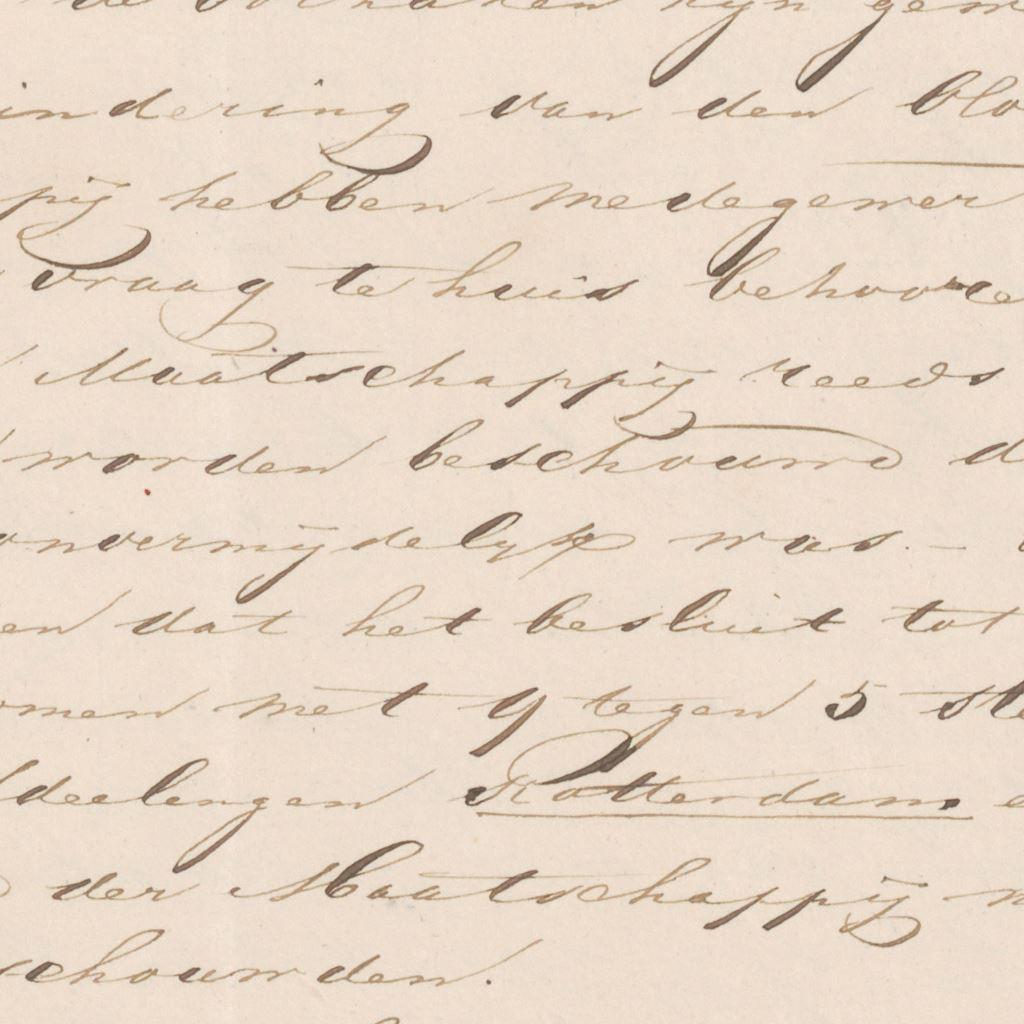 de oorzaken zijn gem
indering van den blo
pij hebben medegewer
vraag te huis behoore
Maatschappij reeds
worden beschouwd d
onvermijdelijk was. –
en dat het besluit tot
omen met 9 tegen 5 ste
deelengen Rotterdam. e
der Maatschappij
schouwden.